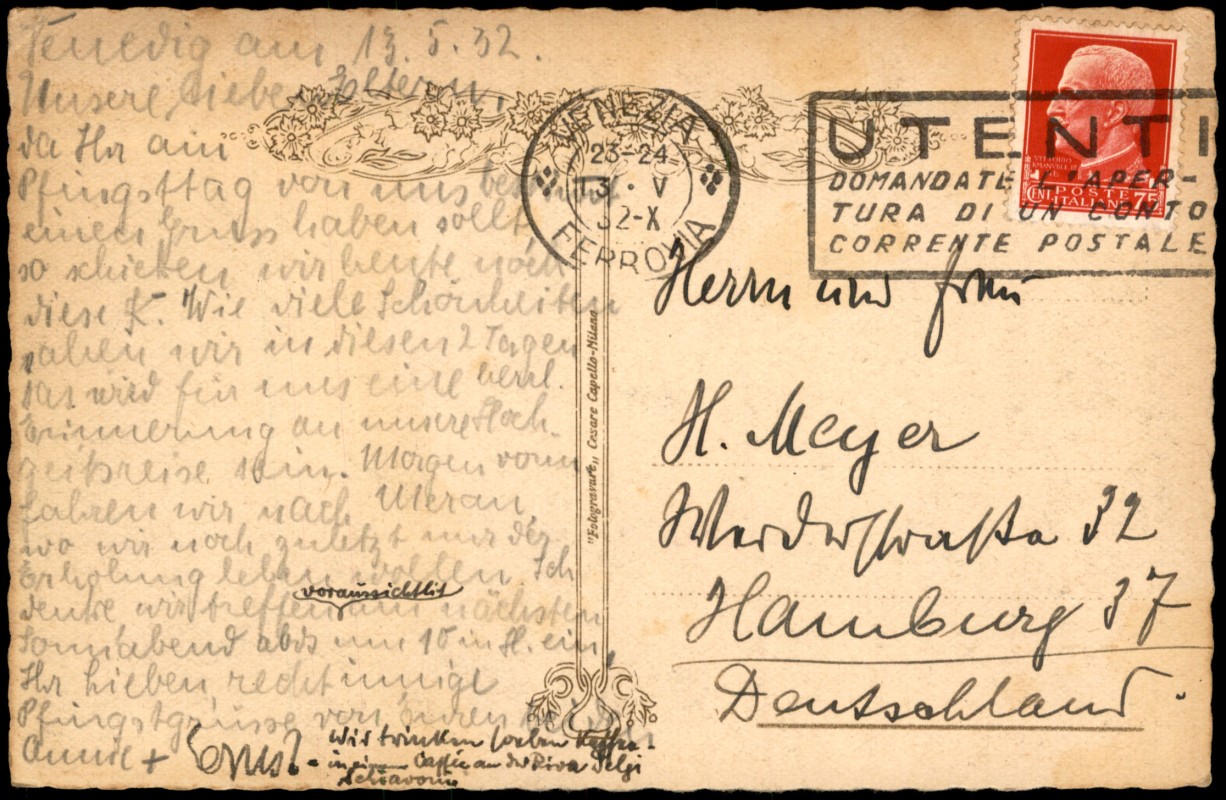 Venedig am 13.5.32.
Unsere lieben Eltern,
da Ihr am
Pfingsttag von uns
einen Gruss haben sollt
so schicken wir heute noch
diese K. Wie viele Schönheiten
sahen wir in diesen 2 Tagen
das wird für uns eine herrl.
Erinnerung an unsere Hoch-
zeitsreise sein. Morgen vorm
fahren wir nach Meran,
wo wir noch zuletzt nur der
Erholung leben wollen Ich
voraussichtlit
denke wir treffen am nächsten
Sonnabend abds um 10 in H. ein,
Ihr lieben recht innige
Pfingstgrüsse von Euren
Annie + Ernst.
Wir trinken soeben Kaffee
in einem Caffée an der Riva Delgi
Schiavoni
"Fotogravure" Cesare Capello-Milano
VENEZIA
23-24
13 · V
32-X
FERROVIA
UTENTI
DOMANDATE L'APER-
TURA DI UN CONTO
CORRENTE POSTALE
POSTE
CENT. ITALIANE 75
Herrn und Frau
H. Meyer
Werderstraße 32
Hamburg 37
Deutschland.